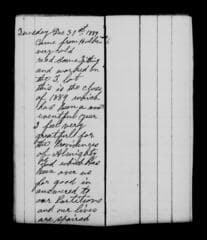 Tuesday Dec 31st 1889
Came from
very cold
read some
and worked on
the
this is the close
of 1889 which
has been a
eventful year
I feel very
greatfull for
the Providences
of Almighty
God which has
been over us
for good in
answered to
our Partitions
and our lives
are spaired